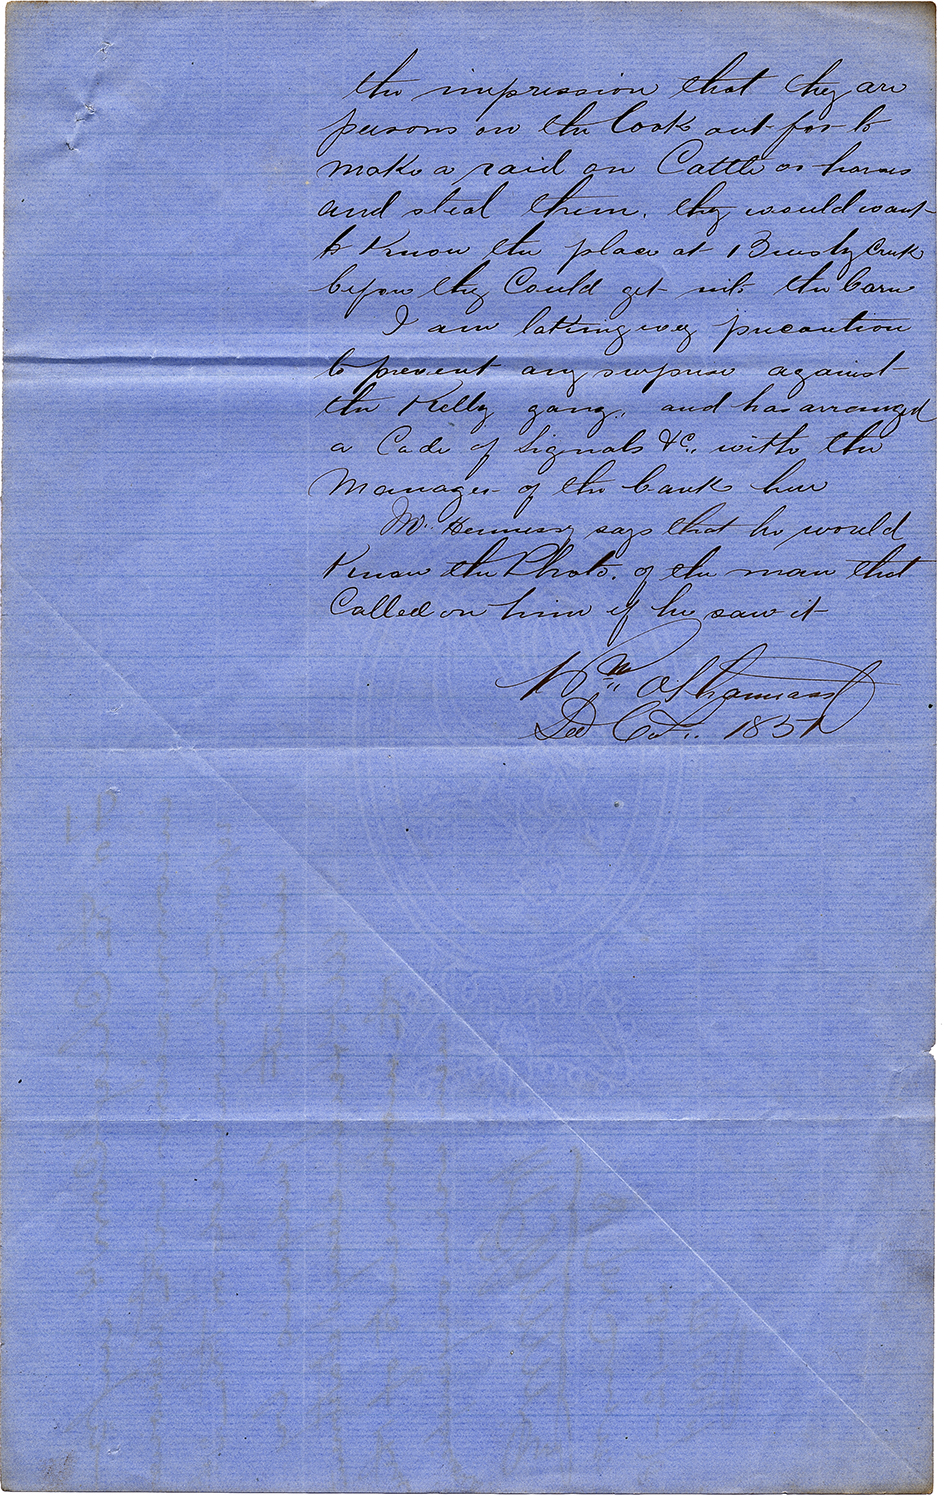 the impression that they are
persons on the look out for to
make a raid on Cattle or horses
and steal them, they would want
to Know the place at Brushy Creek
before they Could get into the barn
I am taking every precaution
to prevent any surprise against
the Kelly gang, and has arranged
a Code of Signals &c., with the
Manager of the bank here
Mr. Hennessy says that he would
Know the Photo. of the man that
Called on him if he saw it
Wm O'Shannassy
Sen Con. 1831